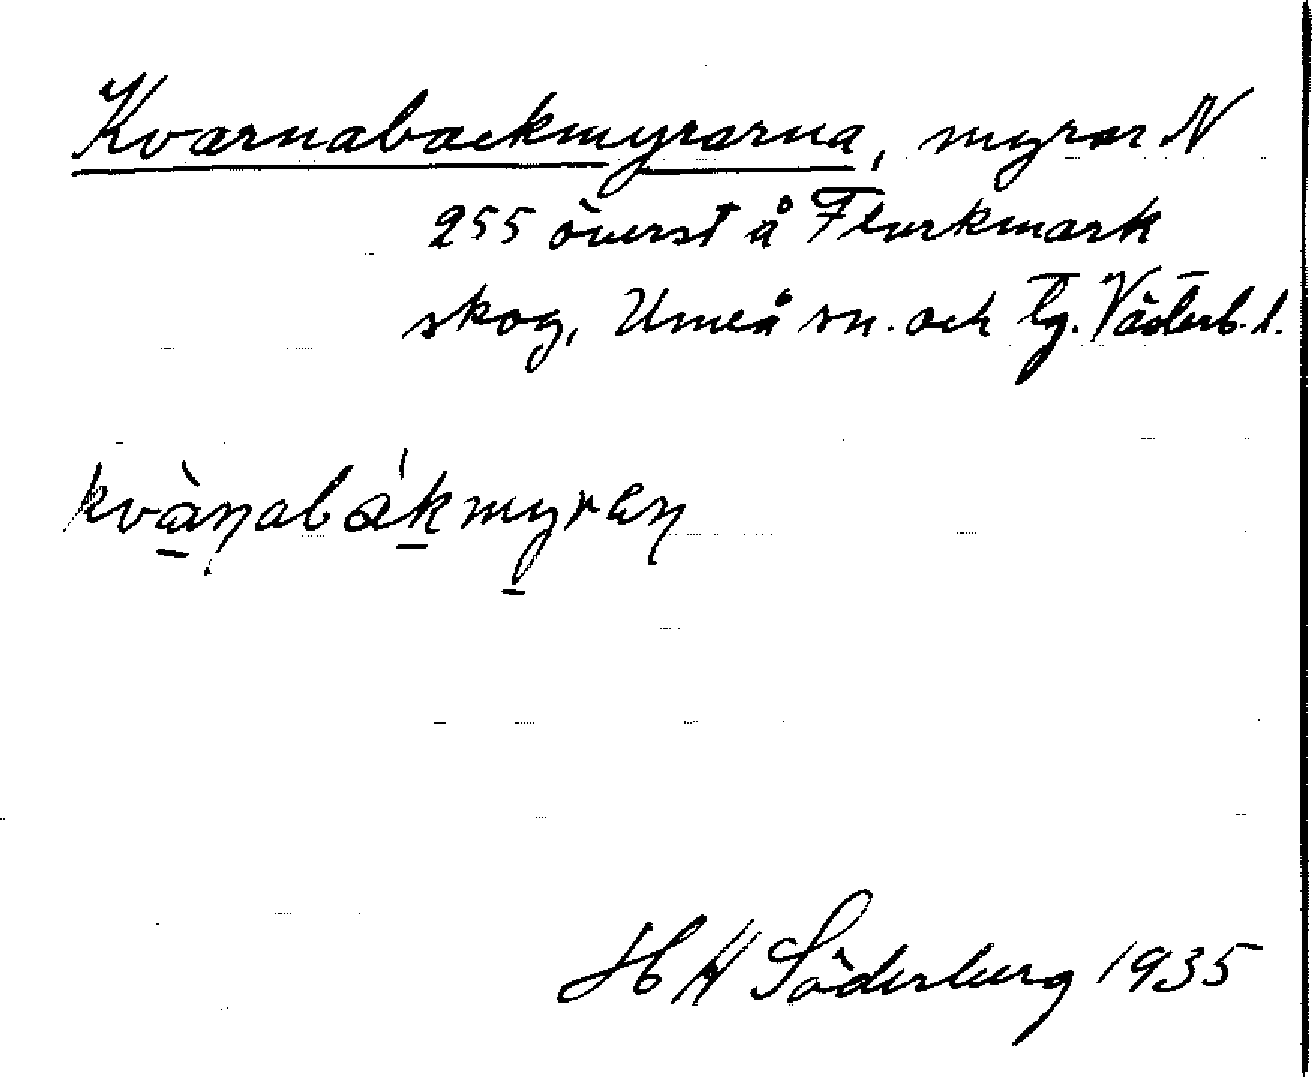 Kvarnabackmyrarna, myrar N
255 överst å Flurkmark
skog, Umeå sn. och tg. Västerb. l.
kvàṇabákmyren
H W Söderberg 1935